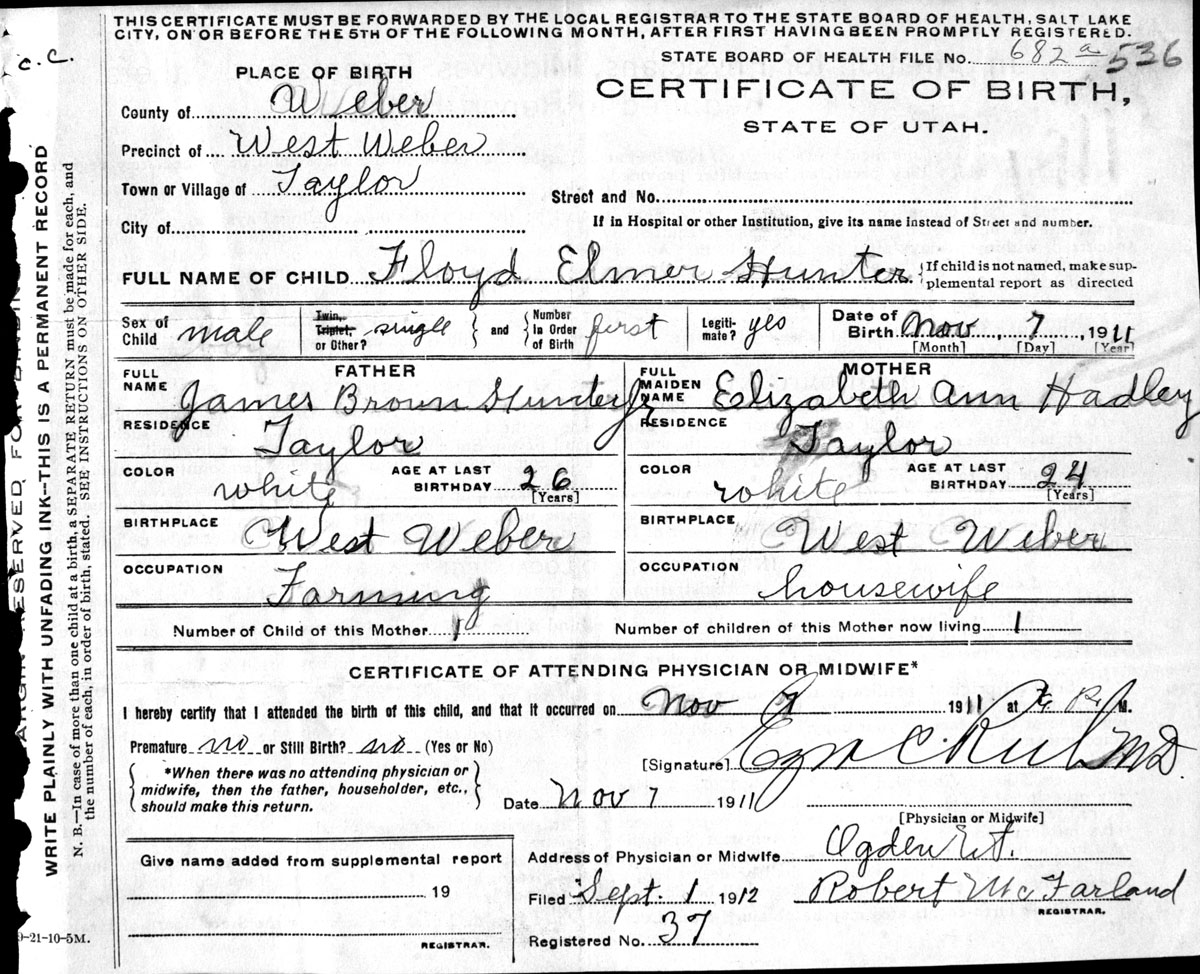 THIS CERTIFICATE MUST BE FORWARDED BY THE LOCAL REGISTRAR TO THE STATE BOARD OF HEALTH, SALT LAKE
CITY, ON OR BEFORE THE 5TH OF THE FOLLOWING MONTH, AFTER FIRST HAVING BEEN PROMPTLY REGISTERED.
C.C.
STATE BOARD OF HEALTH FILE No. 682a 536
PLACE OF BIRTH
CERTIFICATE OF BIRTH,
STATE OF UTAH.
County of Weber
Precinct of West Weber
Town or Village of Taylor
Street and No.
City of
If in Hospital or other Institution, give its name instead of Street and number.
FULL NAME OF CHILD Floyd Elmer Hunter
{If child is not named, make sup-
plemental report as directed
Sex of Child male
Twin, Triplet, or Other? single } and { Number In Order of Birth first
Legiti-mate? yes
Date of Birth Nov 7, 1911
[Month] [Day] [Year]
FATHER
FULL NAME James Brown Hunter Jr
RESIDENCE Taylor
COLOR white AGE AT LAST BIRTHDAY 26 [Years]
BIRTHPLACE West Weber
OCCUPATION Farming
MOTHER
FULL MAIDEN NAME Elizabeth Ann Hadley
RESIDENCE Taylor
COLOR white AGE AT LAST BIRTHDAY 24 [Years]
BIRTHPLACE West Weber
OCCUPATION housewife
Number of Child of this Mother 1 Number of children of this Mother now living 1
CERTIFICATE OF ATTENDING PHYSICIAN OR MIDWIFE*
I hereby certify that I attended the birth of this child, and that it occurred on Nov 7 1911 at P. M.
Premature no or Still Birth? no (Yes or No)
[Signature] M.D.
{ *When there was no attending physician or
midwife, then the father, householder, etc.,
should make this return. }
Date Nov 7 1911
[Physician or Midwife]
Give name added from supplemental report
19
REGISTRAR.
Address of Physician or Midwife Ogden Ut.
Filed Sept. 1 1912 Robert McFarland
REGISTRAR.
Registered No. 37
9-21-10-5M.
MARGIN RESERVED FOR BINDING
WRITE PLAINLY WITH UNFADING INK--THIS IS A PERMANENT RECORD
N. B.--In case of more than one child at a birth, a SEPARATE RETURN must be made for each, and
the number of each, in order of birth, stated. SEE INSTRUCTIONS ON OTHER SIDE.